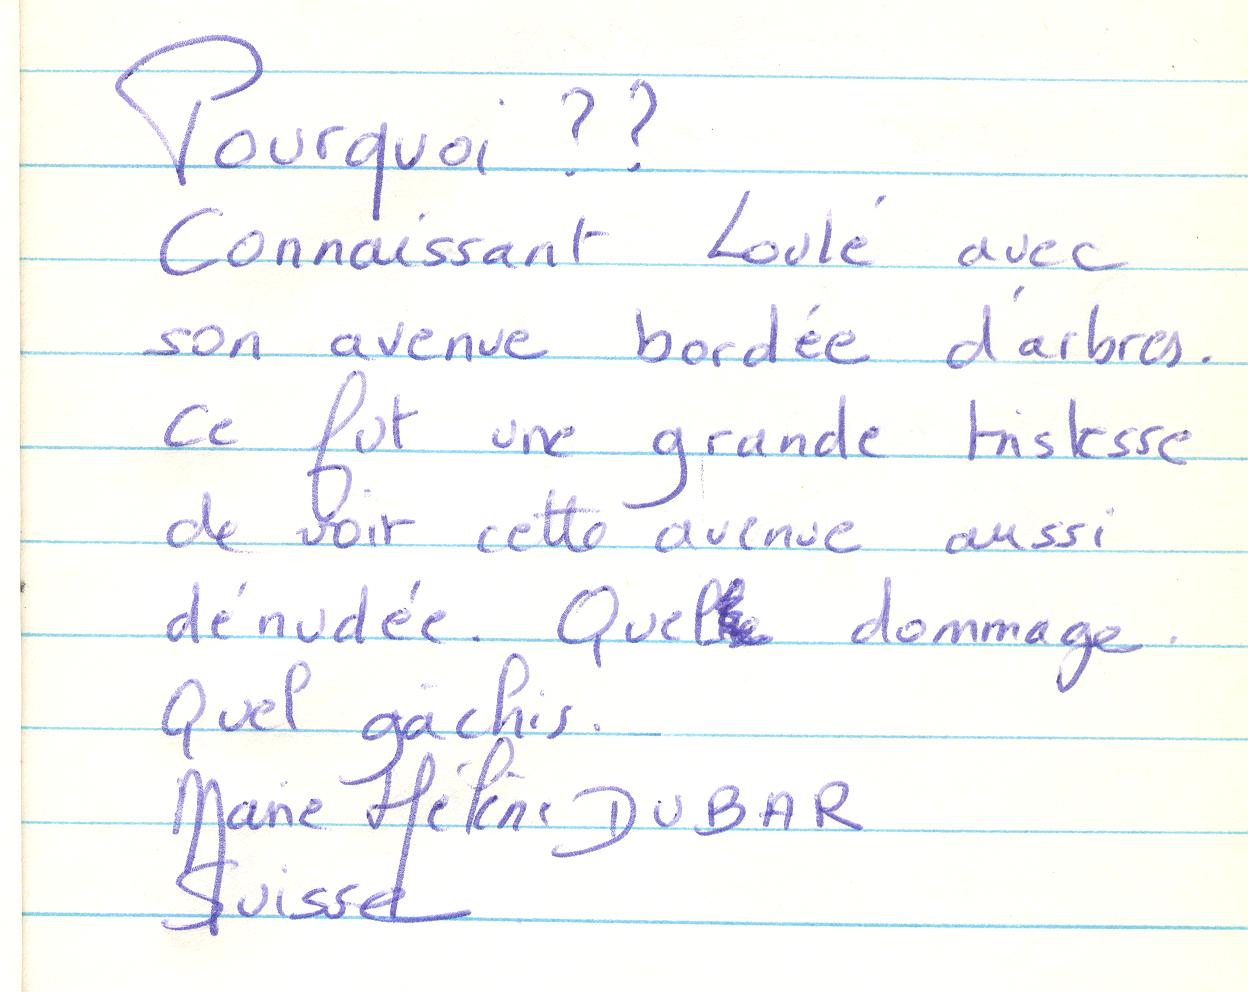 Pourquoi ??
Connaissant Loulé avec
son avenue bordée d'arbres.
Ce fut une grande tristesse
de voir cette avenue aussi
dénudée. Quel dommage.
Quel gâchis.
Marie Hélène DUBAR
Suisse